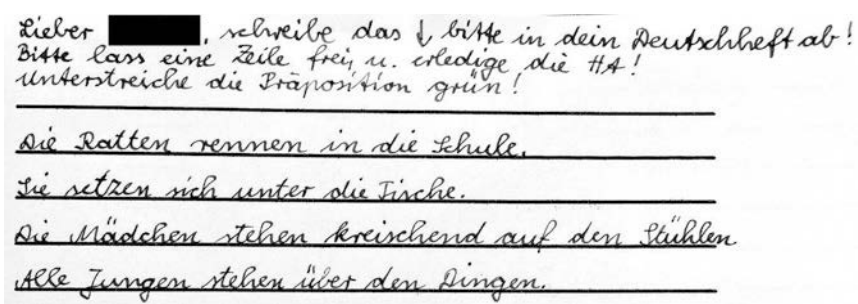 Lieber , schreibe das ↓ bitte in dein Deutschheft ab!
Bitte lass eine Zeile frei, u. erledige die HA!
Unterstreiche die Präposition grün!
Die Ratten rennen in die Schule.
Sie setzen sich unter die Tische.
Die Mädchen stehen kreischend auf den Stühlen
Alle Jungen stehen über den Dingen.